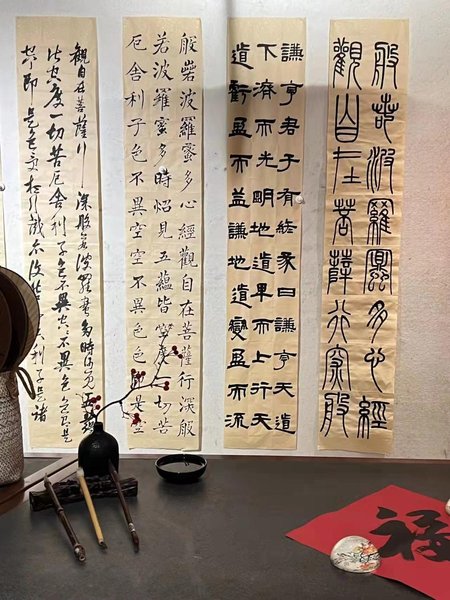 般若波羅蜜多心經
觀自在菩薩行深般
謙亨君子有終彖曰謙亨天道
下濟而光明地道卑而上行天
道虧盈而益謙地道變盈而流
般若波羅蜜多心經觀自在菩薩行深般
若波羅蜜多時照見五蘊皆空度一切苦
厄舍利子色不異空空不異色色是空
觀自在菩薩行深般若波羅蜜多時照見五蘊
皆空度一切苦厄舍利子色不異空空不異色色即是
空即是色受想行識亦復如是舍利子是諸
福